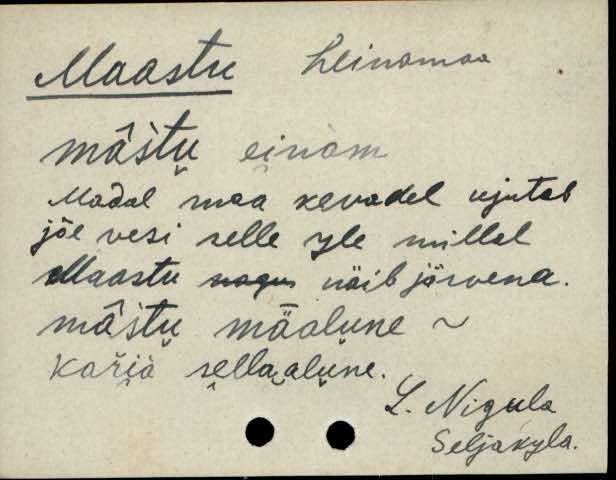 Maastu heinamaa
mâśtu̬ ei̬nàm
Madal maa kevadel ujutab
jõe vesi selle yle millal
Maastu nagu näib järvena.
mâśtu̬ mäalu̬ne ~
kařià sella alune.
L. Nigula
Seljakyla.